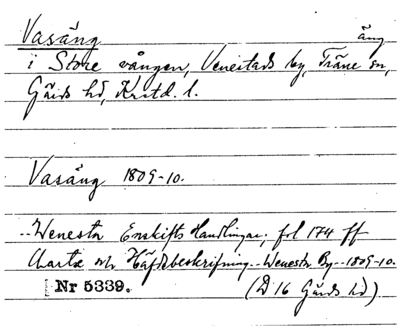 Vasäng äng
i Store vången, Venestads by, Träne sn,
Gärds hd, Kristd. l.
Vasäng 1809-10.
--Wenesta Enskifts Handlingar, fol 174 ff
Charta och Häfdebeskrifning--Wenesta By--1809-10.
Nr 5339. (D 16 Gärds hd)